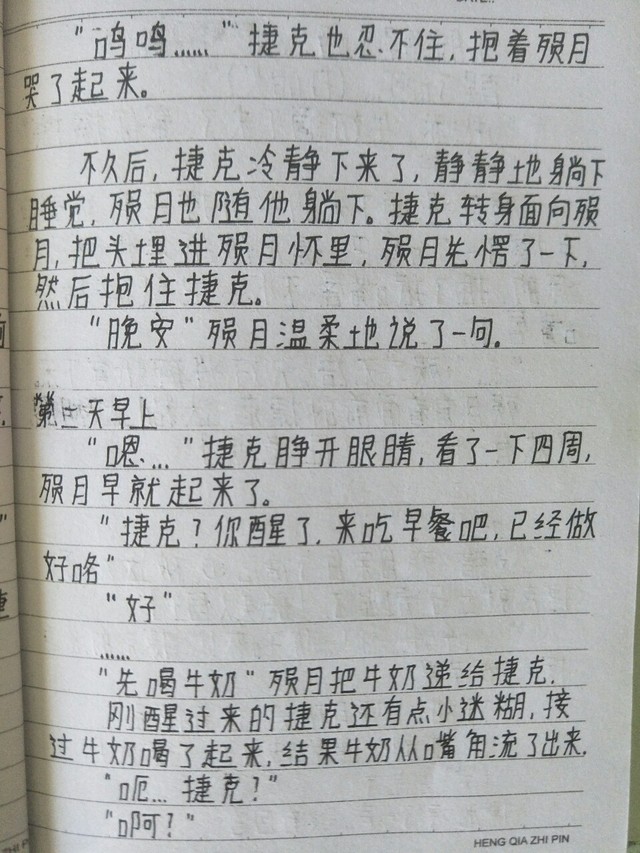 "呜呜......"捷克也忍不住,抱着殒月
哭了起来。
不久后,捷克冷静下来了,静静地躺下
睡觉,殒月也随他躺下。捷克转身面向殒
月,把头埋进殒月怀里,殒月先愣了一下,
然后抱住捷克。
"晚安"殒月温柔地说了一句。
第二天早上
"嗯..."捷克睁开眼睛,看了一下四周,
殒月早就起来了。
"捷克?你醒了,来吃早餐吧,已经做
好咯"
"好"
......
"先喝牛奶"殒月把牛奶递给捷克.
刚醒过来的捷克还有点小迷糊,接
过牛奶喝了起来,结果牛奶从嘴角流了出来.
"呃...捷克?"
"啊?"
HENG QIA ZHI PIN